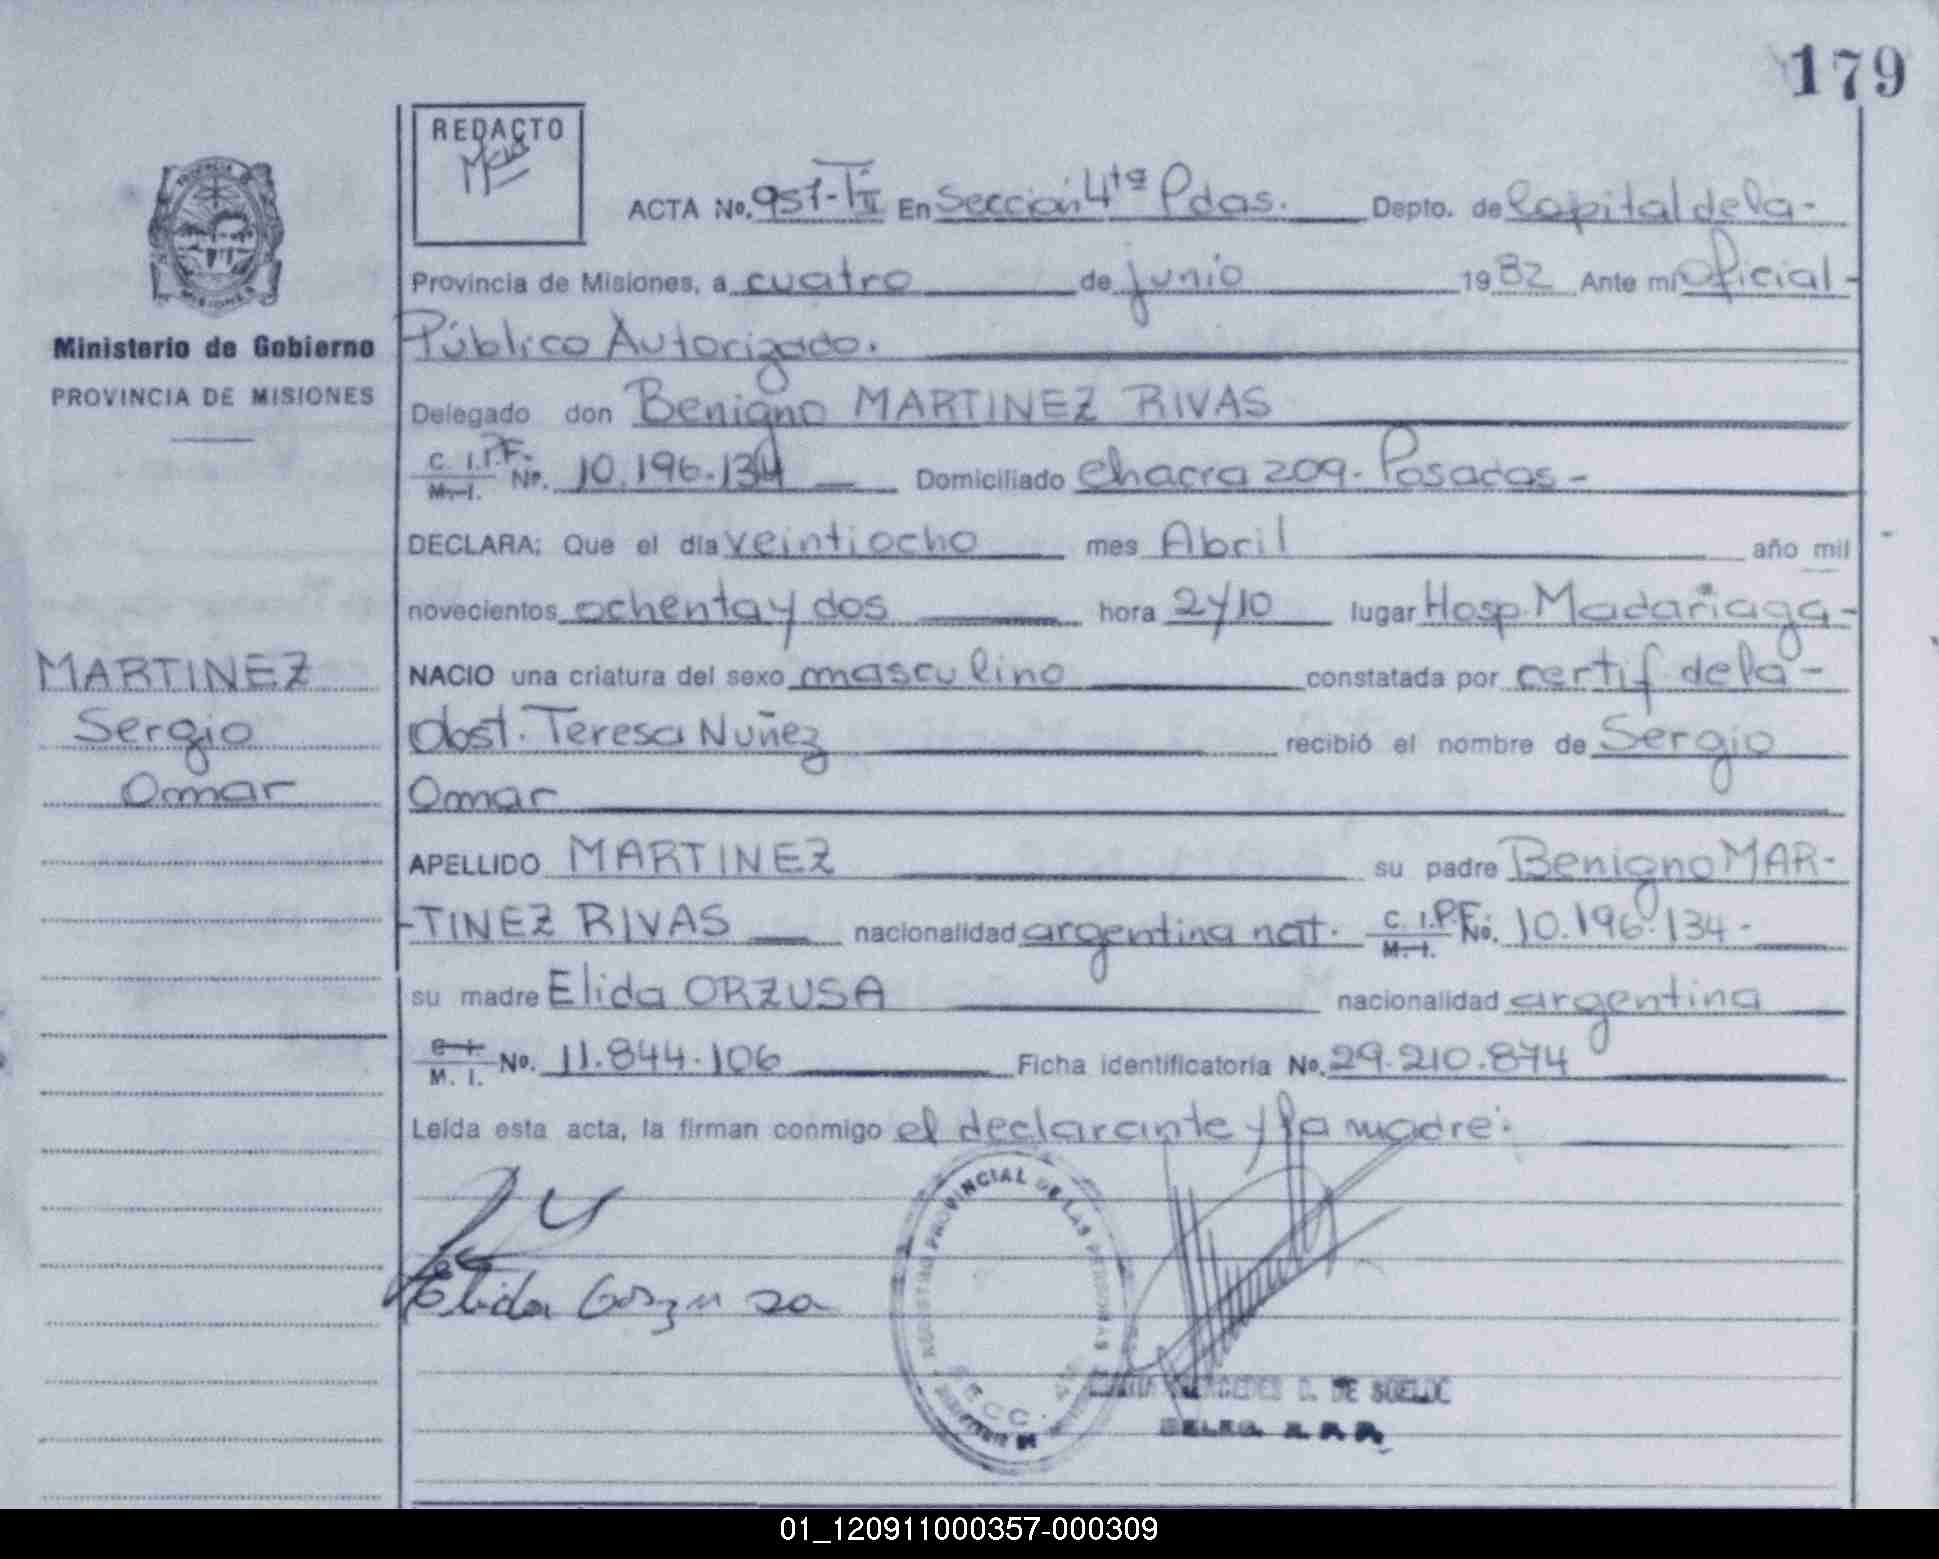 179
REDACTO
PROVINCIA DE
MISIONES
Ministerio de Gobierno
PROVINCIA DE MISIONES
MARTINEZ
Sergio
Omar
ACTA No. 951-TII En Sección 4ta Pdas. Depto. de Capital de la-
Provincia de Misiones, a cuatro de junio 1982 Ante mí Oficial-
Público Autorizado.
Delegado don Benigno MARTINEZ RIVAS
C. I.P.F. M. I. No. 10.196.134 Domiciliado Chacra 209- Posadas-
DECLARA: Que el día veintiocho mes Abril año mil
novecientos ochenta y dos hora 2y10 lugar Hosp. Madariaga-
NACIO una criatura del sexo masculino constatada por certif de la-
obst. Teresa Nuñez recibió el nombre de Sergio
Omar
APELLIDO MARTINEZ su padre Benigno MAR-
-TINEZ RIVAS nacionalidad argentina nat. C. I.P.F. M. I. No. 10.196.134-
su madre Elida ORZUSA nacionalidad argentina
C. I. M. I. No. 11.844.106 Ficha identificatoria No. 29.210.874
Leída esta acta, la firman conmigo el declarante y la madre.
REGISTRO PROVINCIAL DE LAS PERSONAS
SECC.
Elida Orzusa
MERCEDES D. DE
DELEG. R. P. P.
01_120911000357-000309